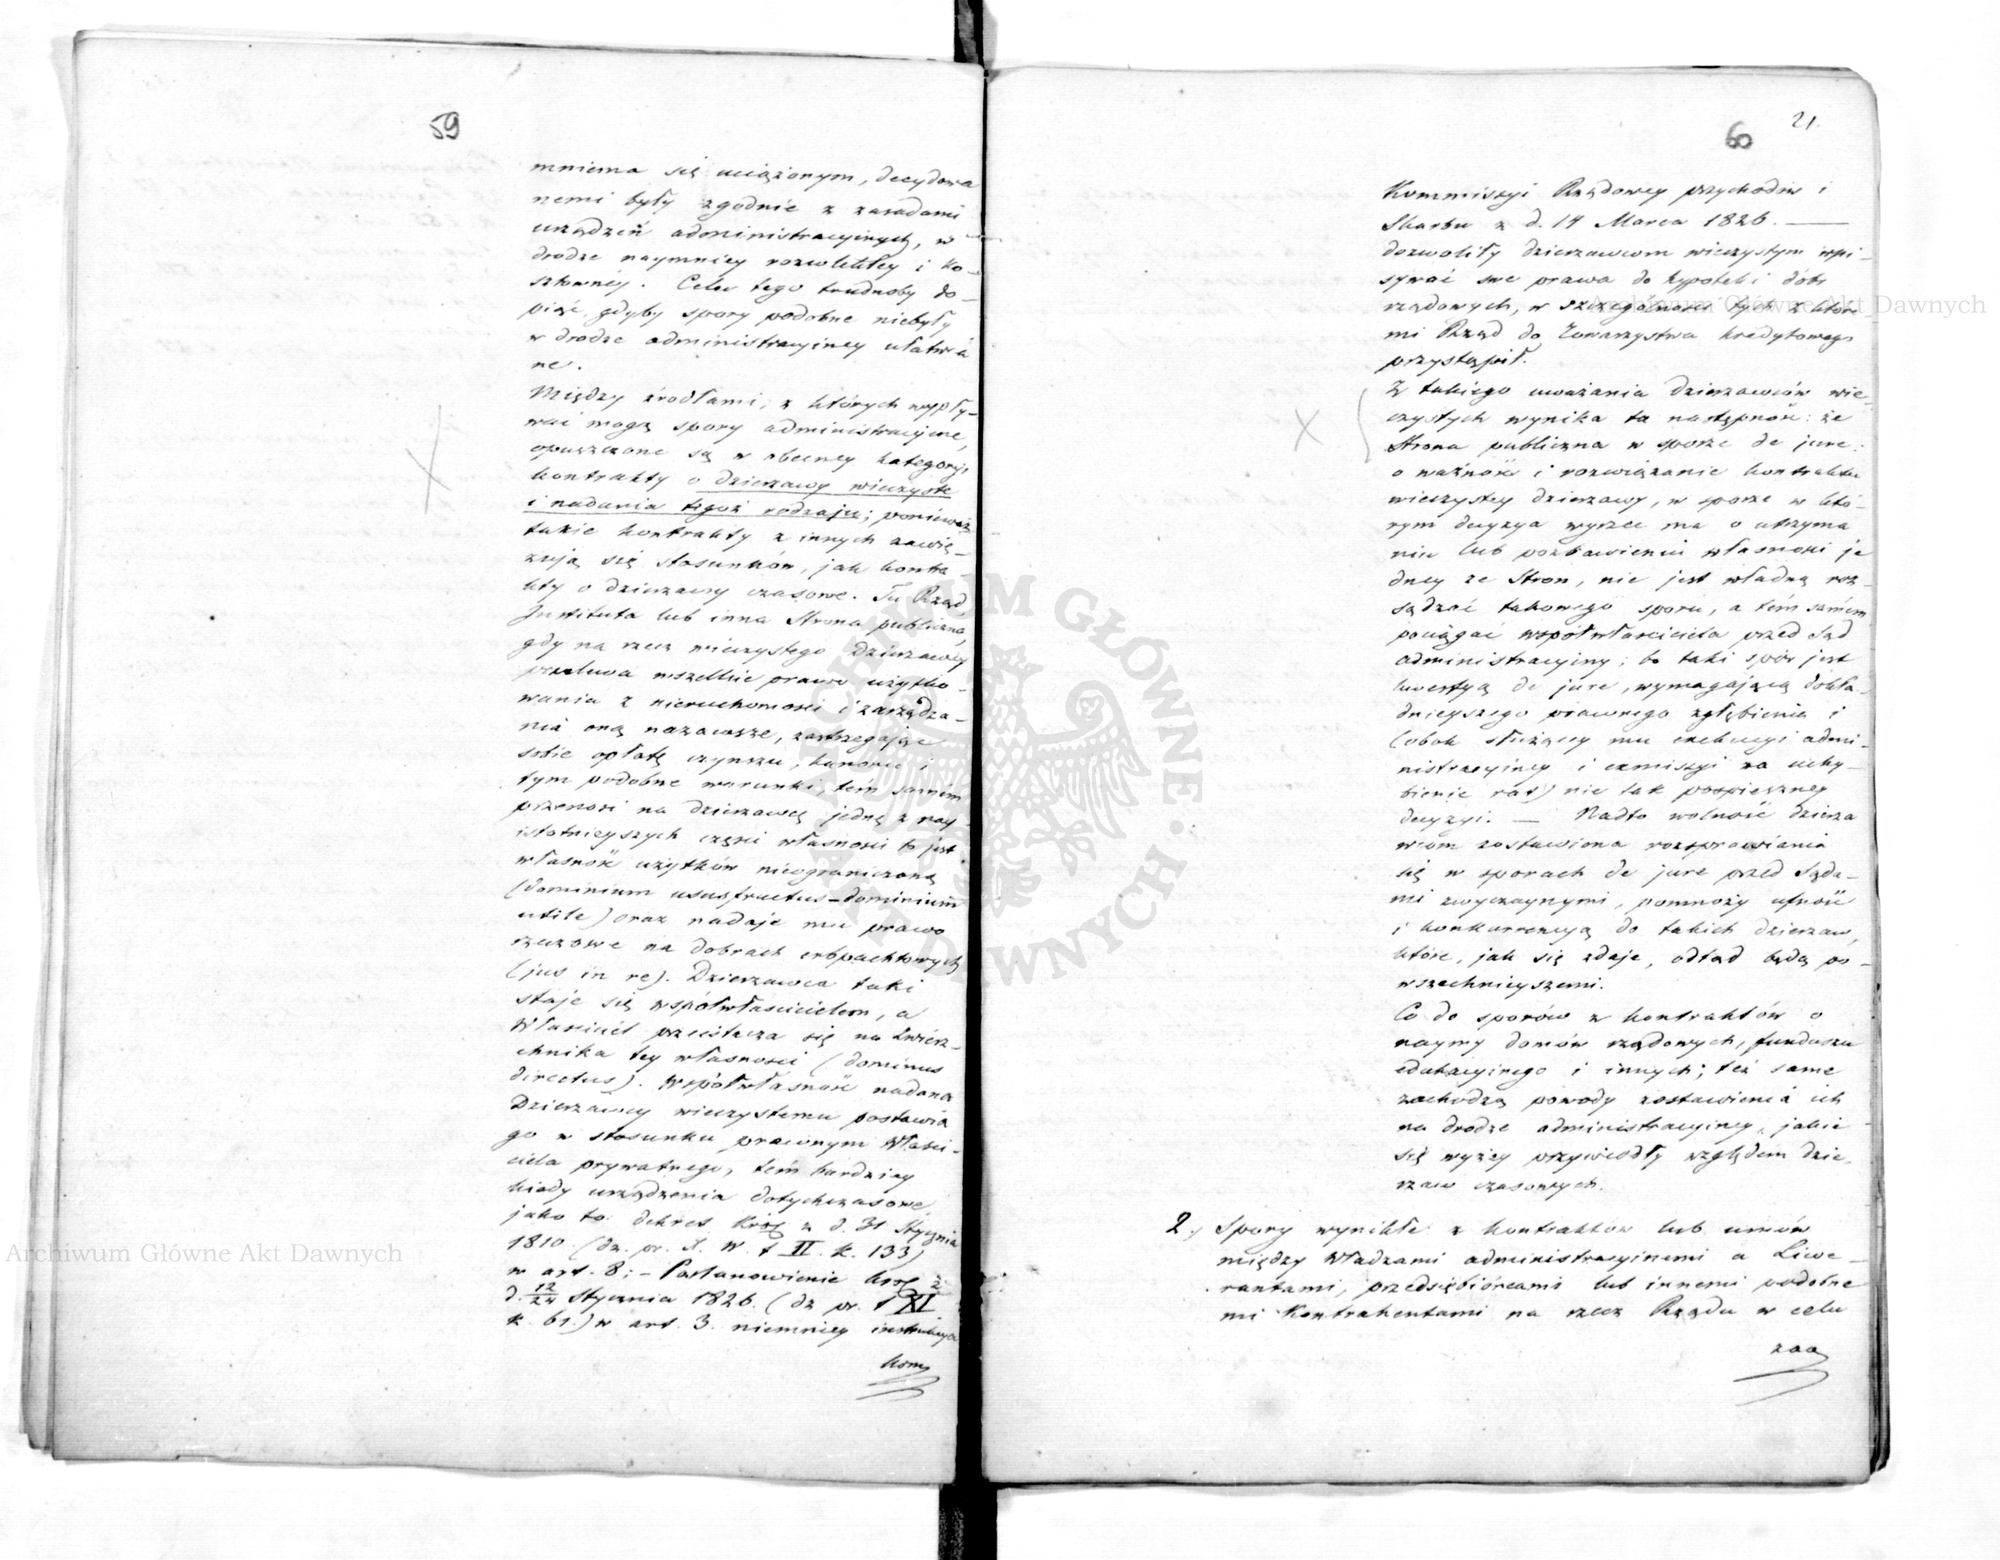 59
mniema się uciążonym, decydowa
nemi były zgodnie z zasadami
urządzeń administracyjnych, w
drodze naymniey rozwlekłey i ko-
sztowney. Celu tego trudnoby do-
piąć, gdyby spory podobne niebyły
w drodze administracyiney ułatwia
ne.
Między źrodłami, z których wypły-
wać mogą spory administracyine,
opuszczone są w obecney kategoryi
kontrakty o dzierzawy wieczyste
i nadania tegoż rodzaju; ponieważ
takie kontrakty z innych zawię-
zują się stosunków, jak kontra
kty o dzierzawy czasowe. Tu Rząd,
Instituta lub inna Strona publiczna,
gdy na rzecz wieczystego Dzierzawcy
przelewa wszelkie prawo użytko-
wania z nieruchomości i zarządza-
nia oną nazawsze, zastrzegając
sobie opłatę czynszu, kanonu i
tym podobne warunki, tem samem
przenosi na dzierzawcę jedną z nay
istotnieyszych części własności to jest
własność użytków nieograniczoną
(dominium ususfructus-dominium
utile) oraz nadaje mu prawo
rzeczowe na dobrach erbpachtowych
(jus in re). Dzierzawca taki
staje się współwłaścicielem, a
Właściciel przeistacza się na Zwierz-
chnika tey własności (dominus
directus). Współwłasność nadana
Dzierzawcy wieczystemu postawia
go w stosunku prawnym Właści-
ciela prywatnego, tem bardziey
kiedy urządzenia dotychczasowe,
jako to: dekret Król z d. 31 Stycznia
1810 (dz. pr. X. W. t II. k. 133)
w art. 8; - Postanowienie Król z
d. 12/24 Stycznia 1826. (dz pr. t XI
k. 61.) w art. 3. niemniey instrukcya
Kom
60
21.
Kommissyi Rządowey przychodów i
Skarbu z d. 14 Marca 1826. —
dozwoliły dzierzawcom wieczystym wpi-
sywać swe prawa do hypoteki dóbr
rządowych, w szczególności tych z któré
mi Rząd do Towarzystwa kredytowego
przystąpił.
Z takiego uważania dzierzawców wie-
czystych wynika ta następność: że
Strona publiczna w sporze de jure:
o ważność i rozwiązanie kontraktu
wieczystey dzierzawy, w sporze w któ-
rym decyzya wyrzec ma o utrzyma
niu lub pozbawieniu własności je
dney ze Stron, nie jest władną roz-
sądzać takowego sporu, a tém samém
pociągać współwłaściciela przed Sąd
administracyiny; bo taki spór jest
kwestyą de jure, wymagającą dokła-
dnieyszego prawnego zgłębienia i
(obok służącey mu exekucyi admi-
nistracyiney i exmissyi za uchy-
bienie rat) nie tak pospieszney
decyzyi. — Nadto wolność dzierza
wcom zostawiona rozprawiania
się w sporach de jure przed Sąda-
mi zwyczaynymi, pomnoży ufność
i konkurrencyą do takich dzierzaw,
które, jak się zdaje, odtąd będą po-
wszechnieyszemi.
Co do sporów z kontraktów o
naymy domów rządowych, funduszu
edukacyinego i innych; też same
zachodzą powody zostawienia ich
na drodze administracyiney, jakie
się wyżey przywiodły względem dzie-
rzaw czasowych.
2.) Spory wynikłe z kontraktów lub umów
między Władzami administracyinemi a Liwe-
rantami, przedsiębiórcami lub innemi podobne
mi Kontrahentami na rzecz Rządu w celu
zao
Archiwum Główne Akt Dawnych
Archiwum Główne Akt Dawnych
ARCHIWUM GŁÓWNE AKT DAWNYCH